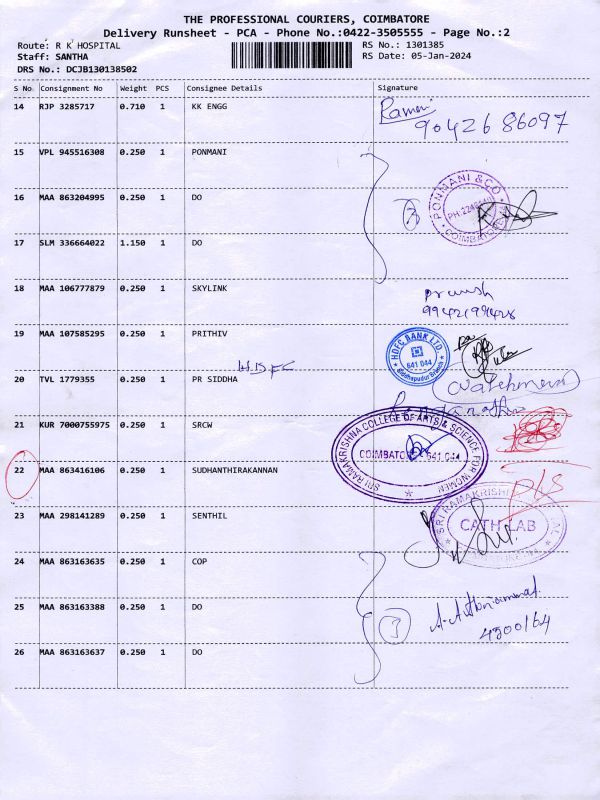 THE PROFESSIONAL COURIERS, COIMBATORE
Delivery Runsheet - PCA - Phone No.:0422-3505555 - Page No.:2
Route: R K HOSPITAL
RS No.: 1301385
Staff: SANTHA
RS Date: 05-Jan-2024
DRS No.: DCJB130138502
S No Consignment No Weight PCS Consignee Details Signature
14 RJP 3285717 0.710 1 KK ENGG
9042686097
15 VPL 945516308 0.250 1 PONMANI
16 MAA 863204995 0.250 1 DO
PONMANI & CO
COIMBATORE
17 SLM 336664022 1.150 1 DO
18 MAA 106777879 0.250 1 SKYLINK
19 MAA 107585295 0.250 1 PRITHIV
HDFC BANK LTD
641 044
Siddhapudur Branch
HDFC
20 TVL 1779355 0.250 1 PR SIDDHA
21 KUR 7000755975 0.250 1 SRCW
SRI RAMAKRISHNA COLLEGE OF ARTS & SCIENCE FOR WOMEN
COIMBATORE 641 044
22 MAA 863416106 0.250 1 SUDHANTHIRAKANNAN
23 MAA 298141289 0.250 1 SENTHIL
CATH LAB
24 MAA 863163635 0.250 1 COP
25 MAA 863163388 0.250 1 DO
3
26 MAA 863163637 0.250 1 DO